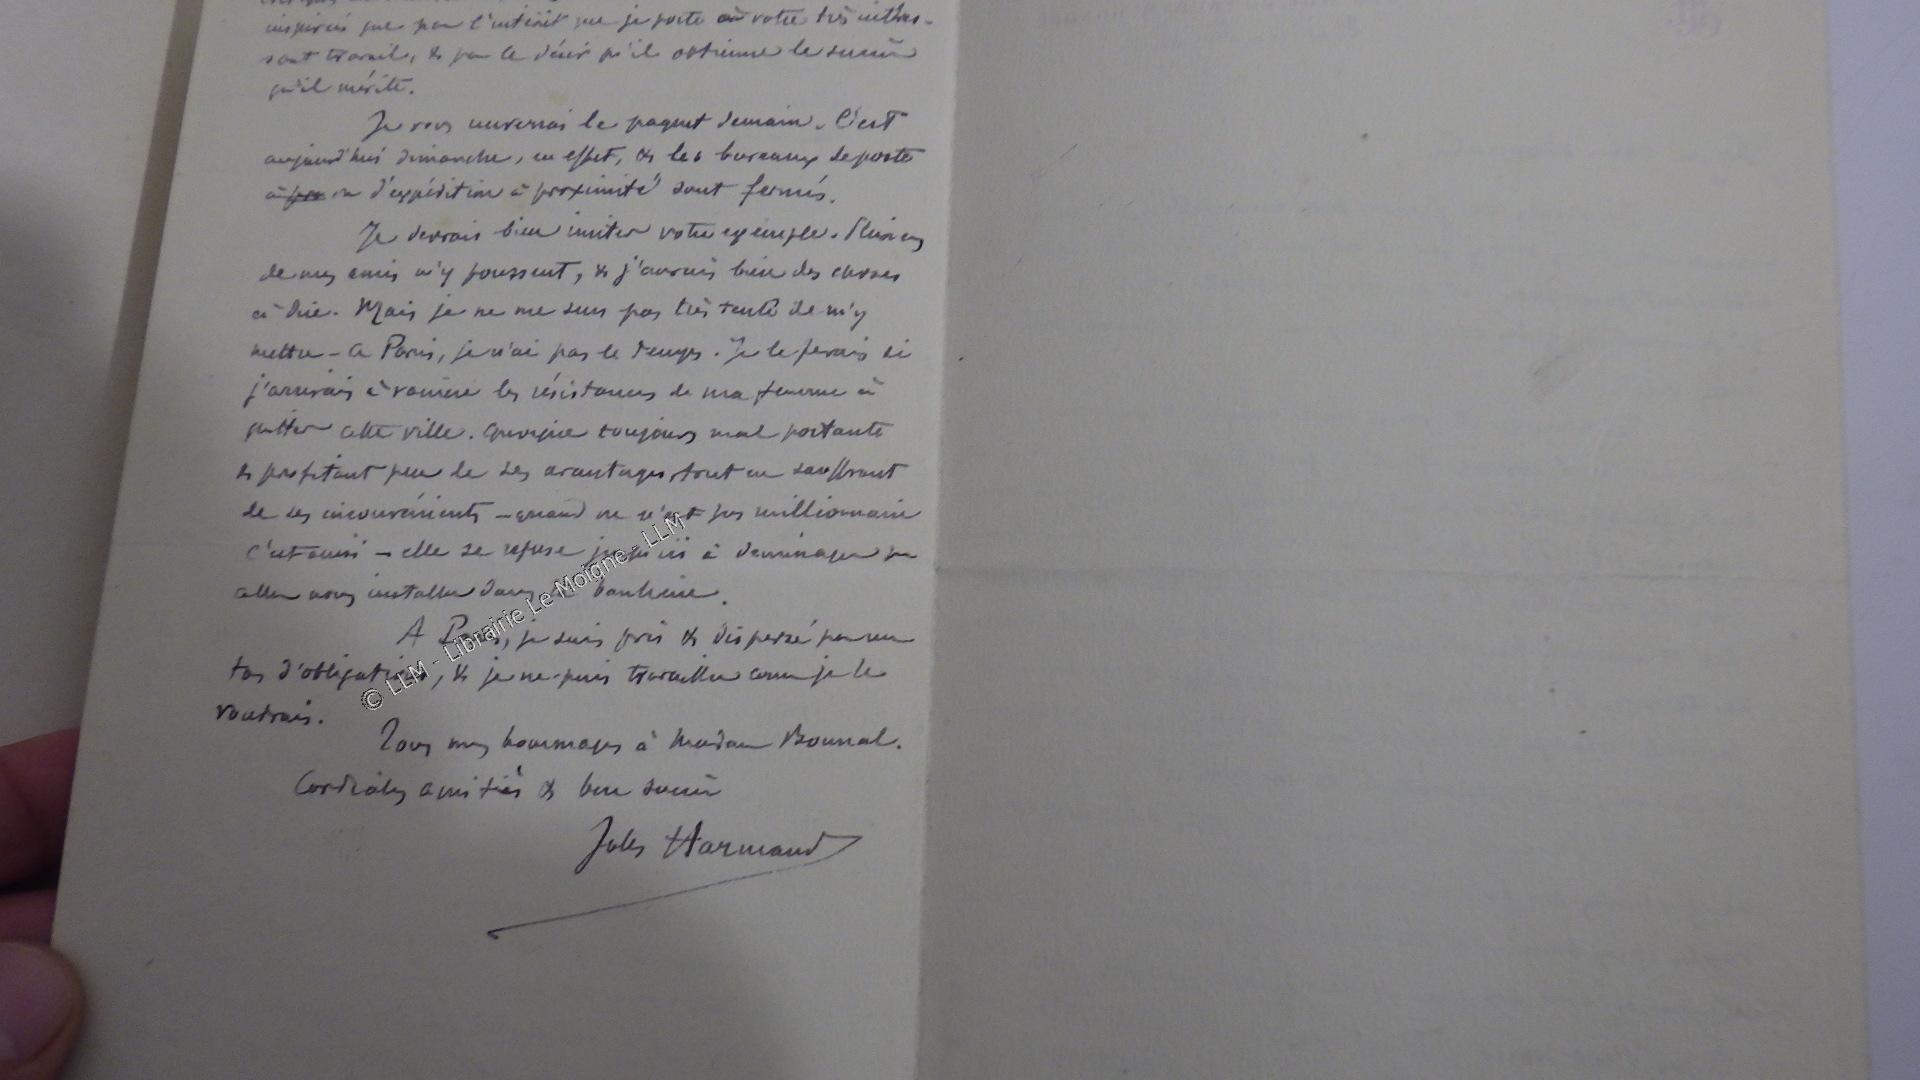 inspirées que par l'intérêt que je porte à votre très intéres-
sant travail, & par le désir qu'il obtienne le succès
qu'il mérite.
Je vous enverrai le paquet demain. C'est
aujourd'hui dimanche, en effet, & les bureaux de poste
à ou d'expédition à proximité sont fermés.
Je devrais bien imiter votre exemple. Plusieurs
de mes amis m'y poussent, & j'aurais bien des choses
à dire. Mais je ne me sens pas très tenté de m'y
mettre - à Paris, je n'ai pas le temps. Je le ferais si
j'arrivais à vaincre les résistances de ma femme à
quitter cette ville. Quoique toujours mal portante
& profitant peu de ses avantages, tout en souffrant
de ses inconvénients - quand on n'est pas millionnaire
c'est ainsi - elle se refuse jusqu'ici à déménager ou
aller nous installer dans la banlieue.
A Paris, je suis pris & dispersé par un
tas d'obligations, & je ne puis travailler comme je le
voudrais.
Tous mes hommages à Madame Bonnal.
Cordiales amitiés & bon succès
Jules Harmand
© LLM - Librairie Le Moigne - LLM